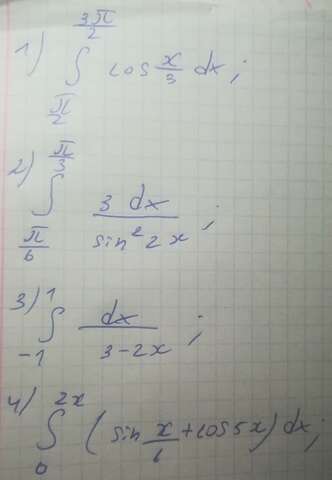 1) ∫_{π/2}^{3π/2} cos x/3 dx;
2) ∫_{π/6}^{π/3} 3 dx / sin² 2x;
3) ∫_{-1}^{1} dx / 3-2x;
4) ∫_{0}^{2x} (sin x/6 + cos 5x) dx;